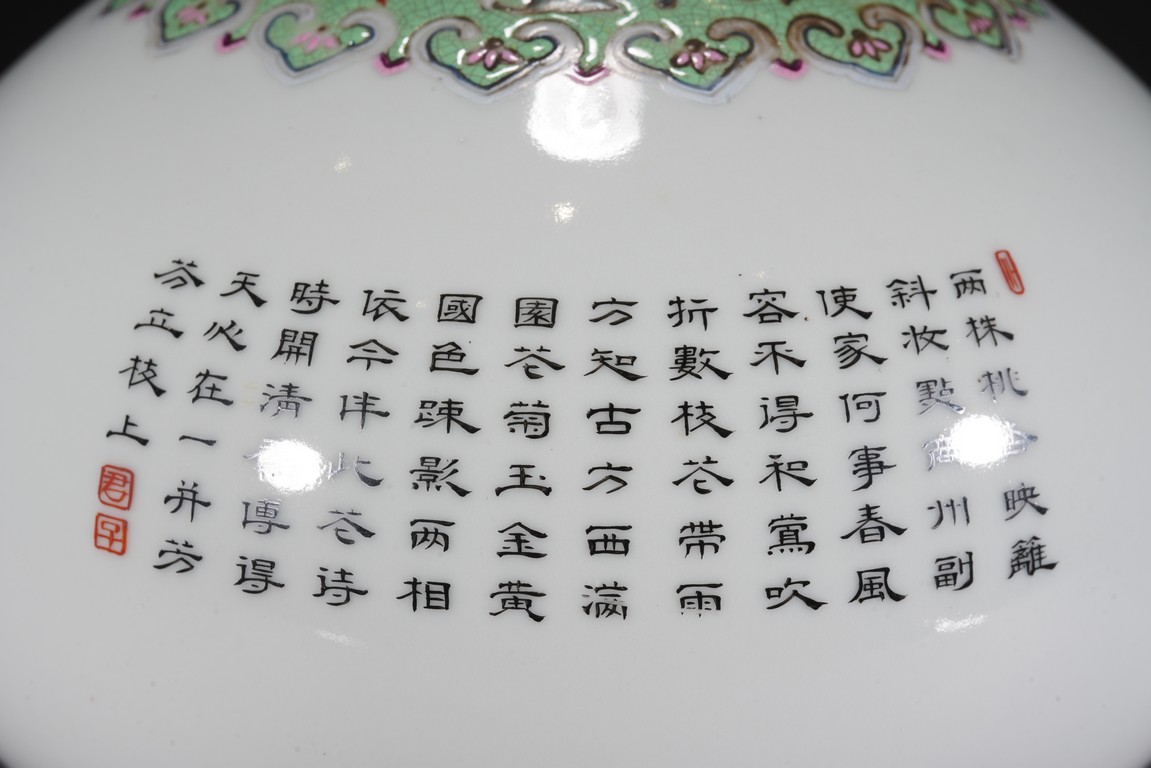 两株桃杏映籬
斜妝點商州副
使家何事春風
容不得和鶯吹
折數枝芲帶雨
方知古方西滿
園芲菊玉金黃
國色踈影两相
依今伴此芲诗
時開清傳得
天心在一并芳
芬立枝上
君子